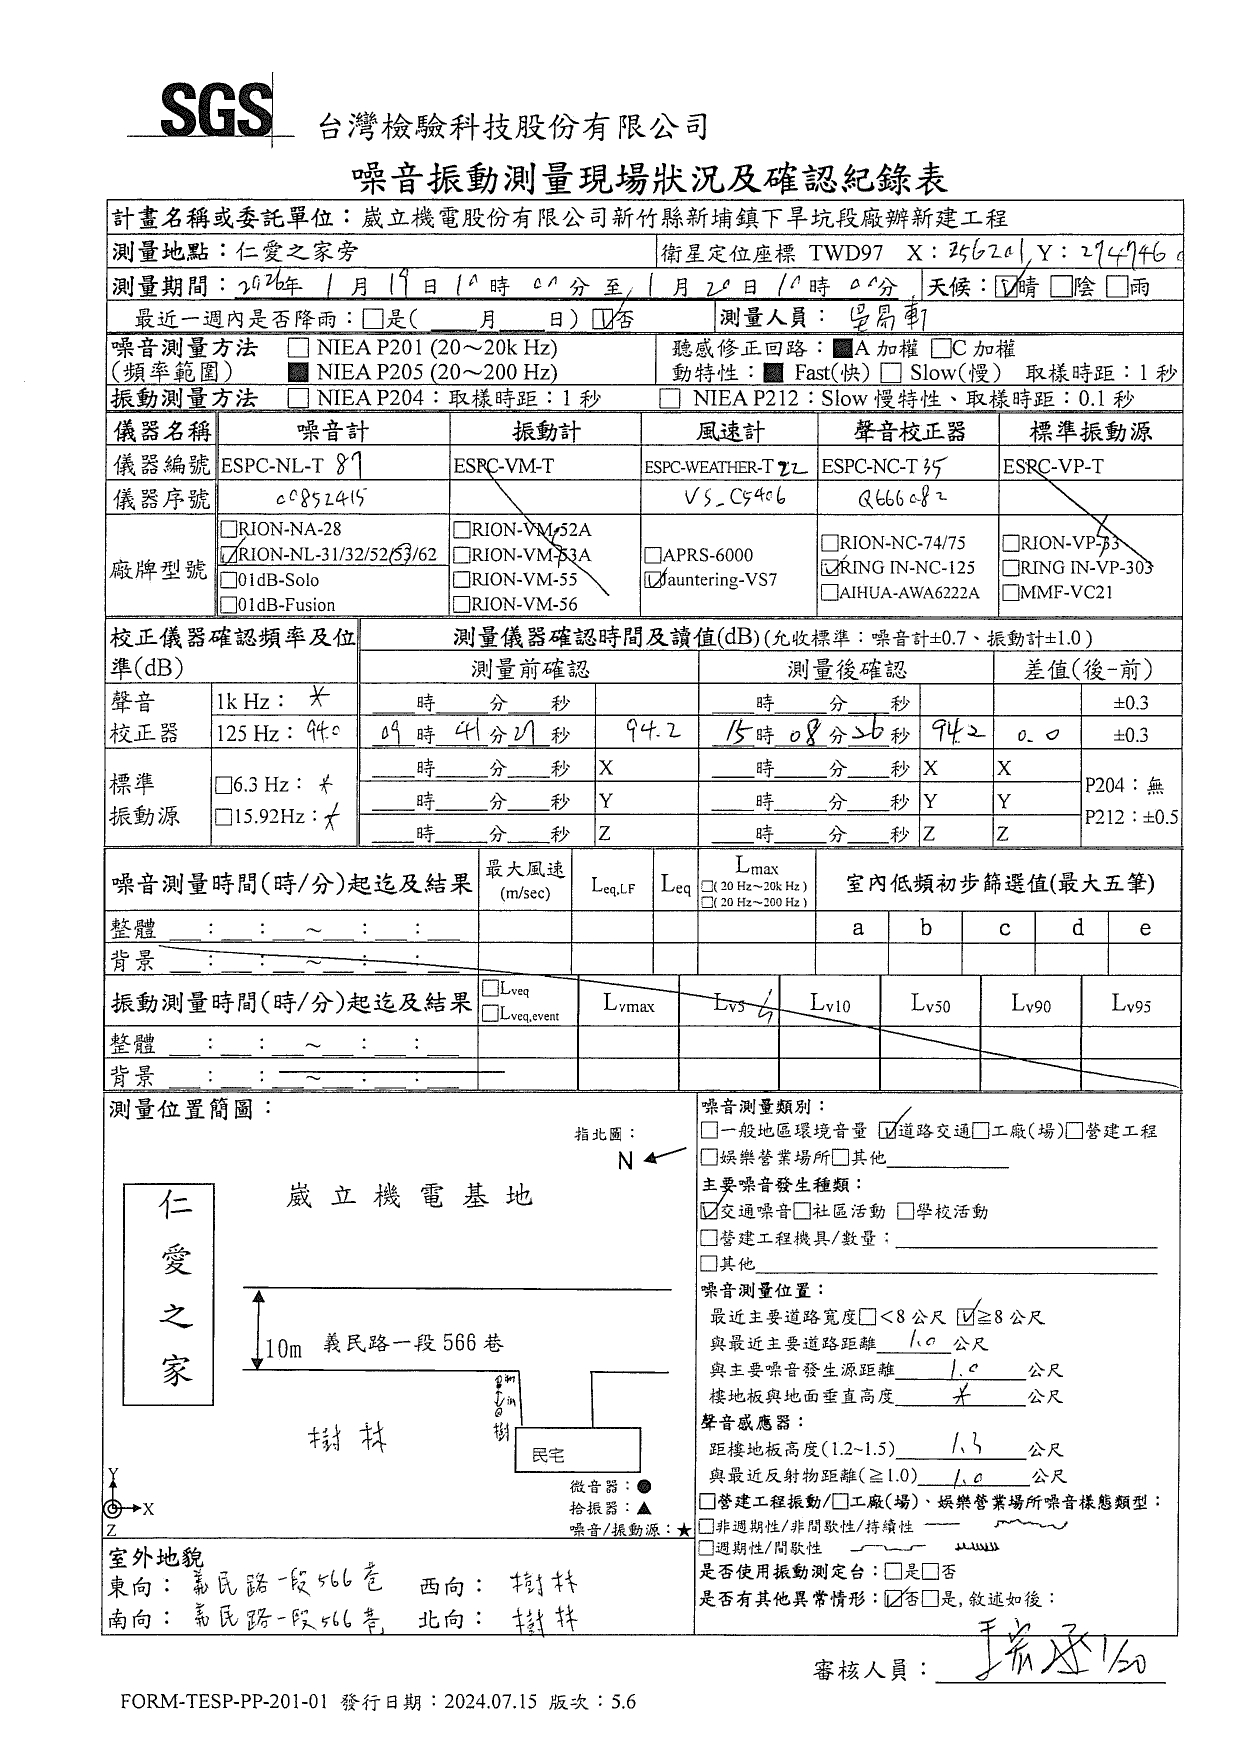 SGS 台灣檢驗科技股份有限公司
噪音振動測量現場狀況及確認紀錄表
計畫名稱或委託單位：崴立機電股份有限公司新竹縣新埔鎮下旱坑段廠辦新建工程
測量地點：仁愛之家旁 衛星定位座標 TWD97 X：256201, Y：2747460
測量期間：2026年 1 月 19 日 10 時 00 分至 1 月 20 日 10 時 00 分 天候：☑晴 □陰 □雨
最近一週內是否降雨：□是( 月 日) ☑否 測量人員：
噪音測量方法 □ NIEA P201 (20～20k Hz) 聽感修正回路：■A 加權 □C 加權
(頻率範圍) ■ NIEA P205 (20～200 Hz) 動特性：■ Fast(快) □ Slow(慢) 取樣時距：1 秒
振動測量方法 □ NIEA P204：取樣時距：1 秒 □ NIEA P212：Slow 慢特性、取樣時距：0.1 秒
儀器名稱 噪音計 振動計 風速計 聲音校正器 標準振動源
儀器編號 ESPC-NL-T 87 ESPC-VM-T ESPC-WEATHER-T 22 ESPC-NC-T 35 ESPC-VP-T
儀器序號 00852415 VS-C5406 Q666082
廠牌型號
□RION-NA-28
☑RION-NL-31/32/52/53/62
□01dB-Solo
□01dB-Fusion
□RION-VM-52A
□RION-VM-53A
□RION-VM-55
□RION-VM-56
□APRS-6000
☑Jauntering-VS7
□RION-NC-74/75
☑RING IN-NC-125
□AIHUA-AWA6222A
□RION-VP-33
□RING IN-VP-303
□MMF-VC21
校正儀器確認頻率及位準(dB) 測量儀器確認時間及讀值(dB) (允收標準：噪音計±0.7、振動計±1.0)
測量前確認 測量後確認 差值(後-前)
聲音校正器 1k Hz：* 時 分 秒 時 分 秒 ±0.3
125 Hz：94.0 09 時 41 分 27 秒 94.2 15 時 08 分 26 秒 94.2 0.0 ±0.3
標準振動源 □6.3 Hz：* □15.92Hz：*
時 分 秒 X 時 分 秒 X X
時 分 秒 Y 時 分 秒 Y Y
時 分 秒 Z 時 分 秒 Z Z
P204：無
P212：±0.5
噪音測量時間(時/分)起迄及結果 最大風速(m/sec) Leq,LF Leq Lmax □( 20 Hz～20k Hz ) □( 20 Hz～200 Hz ) 室內低頻初步篩選值(最大五筆)
整體 : : ～ : : a b c d e
背景 : : ～ : :
振動測量時間(時/分)起迄及結果 □Lveq □Lveq,event Lvmax Lv5 Lv10 Lv50 Lv90 Lv95
整體 : : ～ : :
背景 : : ～ : :
測量位置簡圖：
指北圖：
N
崴立機電基地
仁愛之家
10m 義民路一段 566 巷
1m
樹
樹林
民宅
微音器：●
拾振器：▲
噪音/振動源：★
Y
X
Z
室外地貌
東向：義民路一段566巷 西向：樹林
南向：義民路一段566巷 北向：樹林
噪音測量類別：
□一般地區環境音量 ☑道路交通□工廠(場)□營建工程
□娛樂營業場所□其他
主要噪音發生種類：
☑交通噪音□社區活動 □學校活動
□營建工程機具/數量：
□其他
噪音測量位置：
最近主要道路寬度□<8 公尺 ☑≧8 公尺
與最近主要道路距離 1.0 公尺
與主要噪音發生源距離 1.0 公尺
樓地板與地面垂直高度 * 公尺
聲音感應器：
距樓地板高度(1.2~1.5) 1.3 公尺
與最近反射物距離(≧1.0) 1.0 公尺
□營建工程振動/□工廠(場)、娛樂營業場所噪音樣態類型：
□非週期性/非間歇性/持續性
□週期性/間歇性
是否使用振動測定台：□是□否
是否有其他異常情形：☑否□是,敘述如後：
審核人員： 1/20
FORM-TESP-PP-201-01 發行日期：2024.07.15 版次：5.6